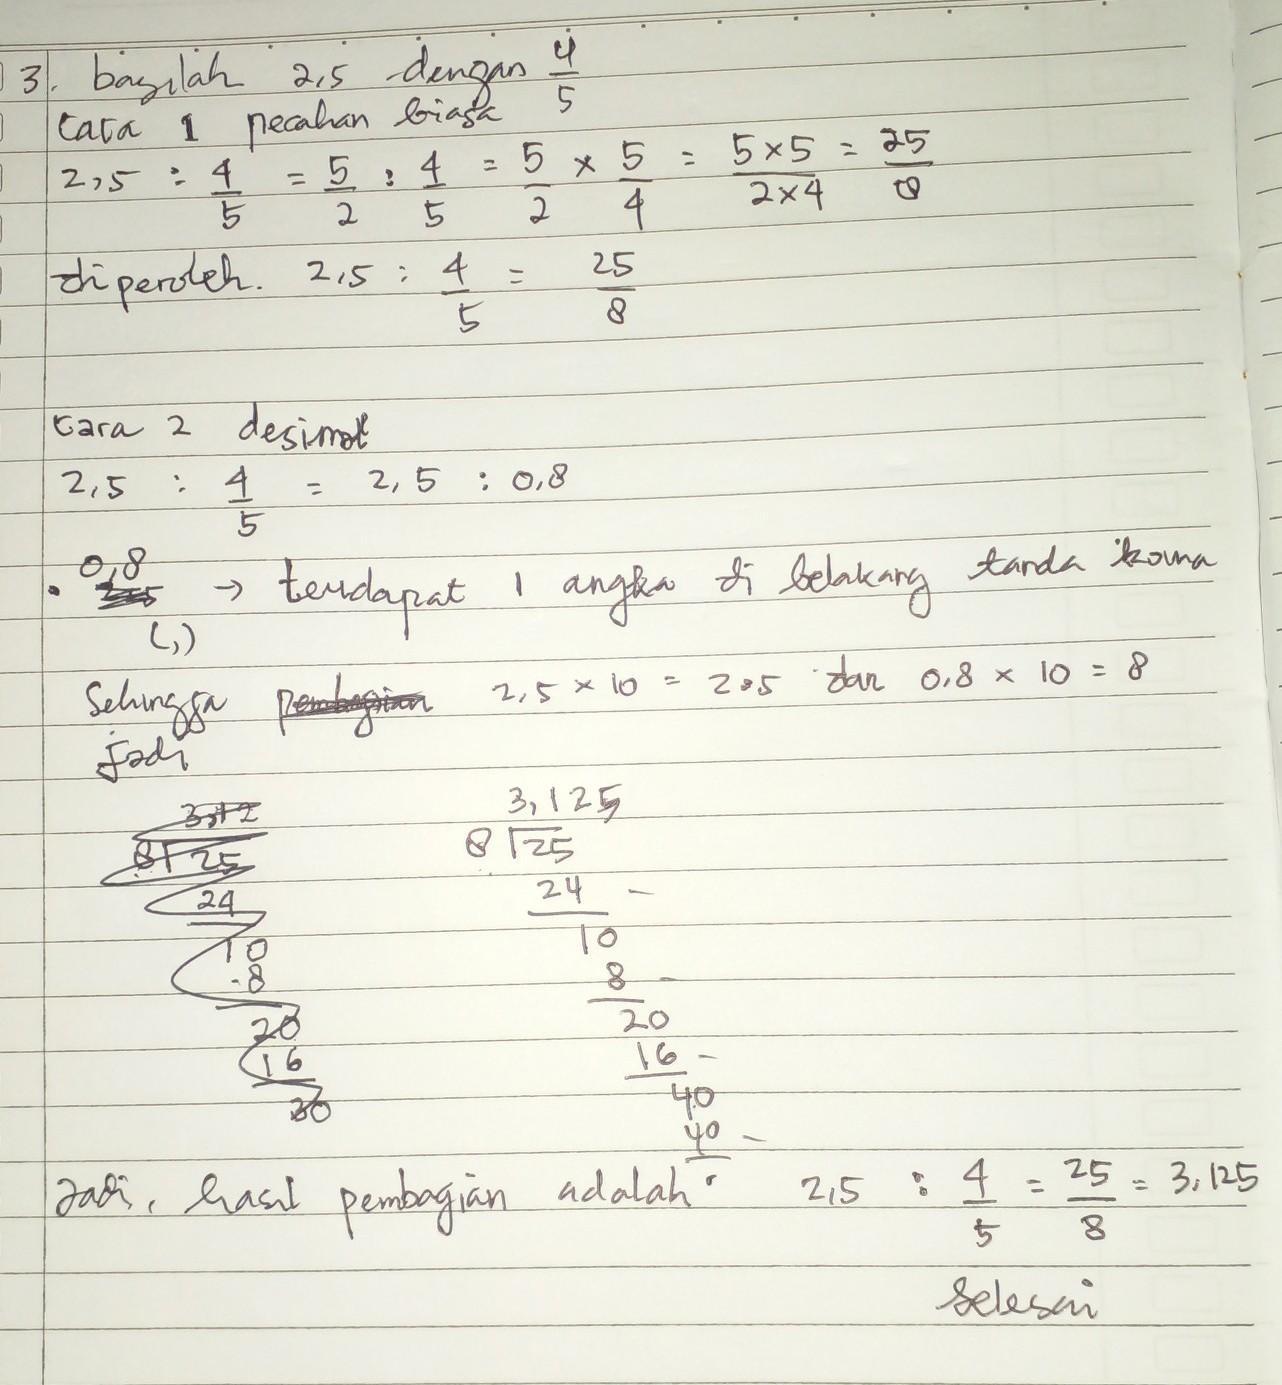 3. bagilah 2,5 dengan 4/5
Cara 1 pecahan biasa
2,5 : 4/5 = 5/2 : 4/5 = 5/2 × 5/4 = 5×5/2×4 = 25/8
diperoleh. 2,5 : 4/5 = 25/8
Cara 2 desimal
2,5 : 4/5 = 2,5 : 0,8
• 0,8 → terdapat 1 angka di belakang tanda koma
(,)
Sehingga pembagian 2,5 × 10 = 25 dan 0,8 × 10 = 8
jadi
3,12
8√25
24
10
8
20
16
30
3,125
8√25
24 -
10
8 -
20
16 -
40
40 -
Jadi, hasil pembagian adalah 2,5 : 4/5 = 25/8 = 3,125
Selesai